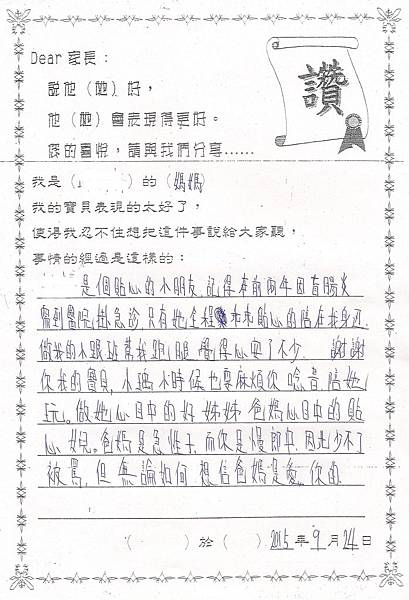 Dear 家長：
讚
說他（她）好，
他（她）會表現得更好。
您的喜悅，請與我們分享……
我是（ ）的（媽媽）
我的寶貝表現的太好了，
使得我忍不住想把這件事說給大家聽，
事情的經過是這樣的：
是個貼心的小朋友，記得在前兩年因盲腸炎
需到醫院掛急診，只有她全程乖乖貼心的陪在我身邊，
做我的小跟班幫我跑腿，覺得心安了不少。 謝謝
你我的寶貝，小 小時候也要麻煩你唸書陪她
玩。做她心目中的好姊姊，爸媽心目中的貼
心女兒。爸媽是急性子，而你是慢郎中，因此少不了
被罵，但無論如何，相信爸媽是愛你的。
（ ）於（ ）2015年9月24日